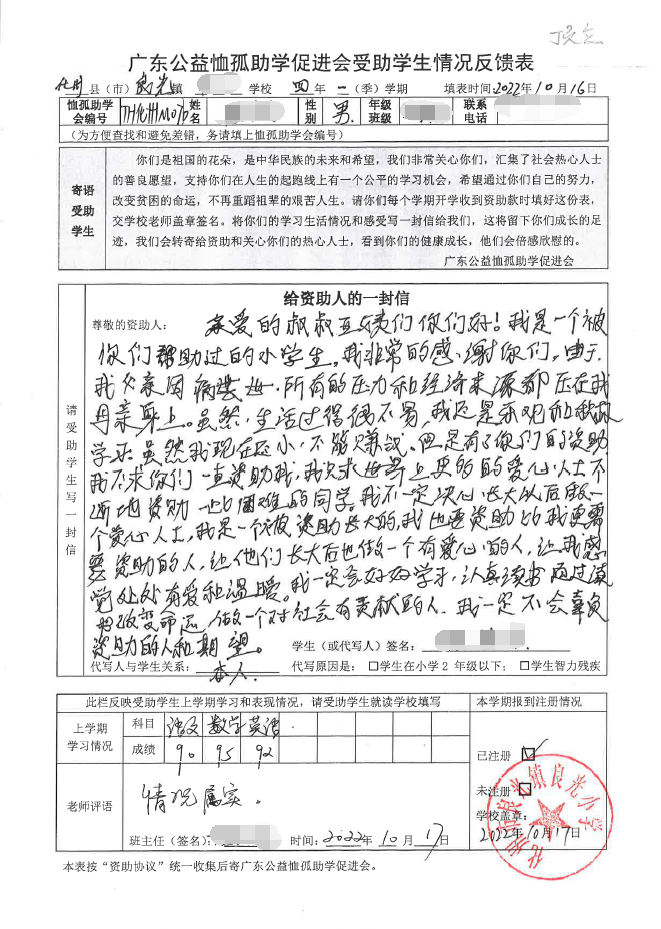 广东公益恤孤助学促进会受助学生情况反馈表
化州县（市）良光镇 学校 四年一（季）学期 填表时间:2022年10月16日
恤孤助学会编号 姓名 性别 男 年级班级 联系电话
（为方便查找和避免差错，务请填上恤孤助学会编号）
寄语受助学生
你们是祖国的花朵，是中华民族的未来和希望，我们非常关心你们，汇集了社会热心人士
的善良愿望，支持你们在人生的起跑线上有一个公平的学习机会，希望通过你们自己的努力，
改变贫困的命运，不再重蹈祖辈的艰苦人生。请你们每个学期开学收到资助款时填好这份表，
交学校老师盖章签名。将你们的学习生活情况和感受写一封信给我们，这将留下你们成长的足
迹，我们会转寄给资助和关心你们的热心人士，看到你们的健康成长，他们会倍感欣慰的。
广东公益恤孤助学促进会
请受助学生写一封信
给资助人的一封信
尊敬的资助人：
亲爱的叔叔 姨们你们好！我是一个被
你们帮助过的小学生。我非常的感谢你们，由于
我父亲因病 世，所有的压力和经济来源都压在我
母亲身上。虽然，生活过得很不易，我还是乐观和
学习。虽然我现在还小，不能赚钱。但是有了你们的资助
我不求你们一直资助我，我只求世界上更多的爱心人士不
断地资助 困难的同学。我 一定决心长大以后做一
个爱心人士，我是一个被资助长大的，我也要资助比我更需
要资助的人，让他们长大后也做一个有爱心的人，让我感
觉处处有爱和温暖。我一定会好好学习，认真读书通过读
书改变命运，做一个对社会有贡献的人。我一定不会辜负
资助的人和期望。
学生（或代写人）签名：
代写人与学生关系：本人 代写原因是：□学生在小学2年级以下；□学生智力残疾
此栏反映受助学生上学期学习和表现情况，请受助学生就读学校填写
本学期报到注册情况
上学期学习情况
科目 语文 数学 英语
成绩 90 95 92
已注册 ☑
未注册 □
学校盖章：
2022年10月17日
化州市良光镇良光小学
老师评语
情况属实。
班主任（签名）： 时间：2022年10月17日
本表按“资助协议”统一收集后寄广东公益恤孤助学促进会。